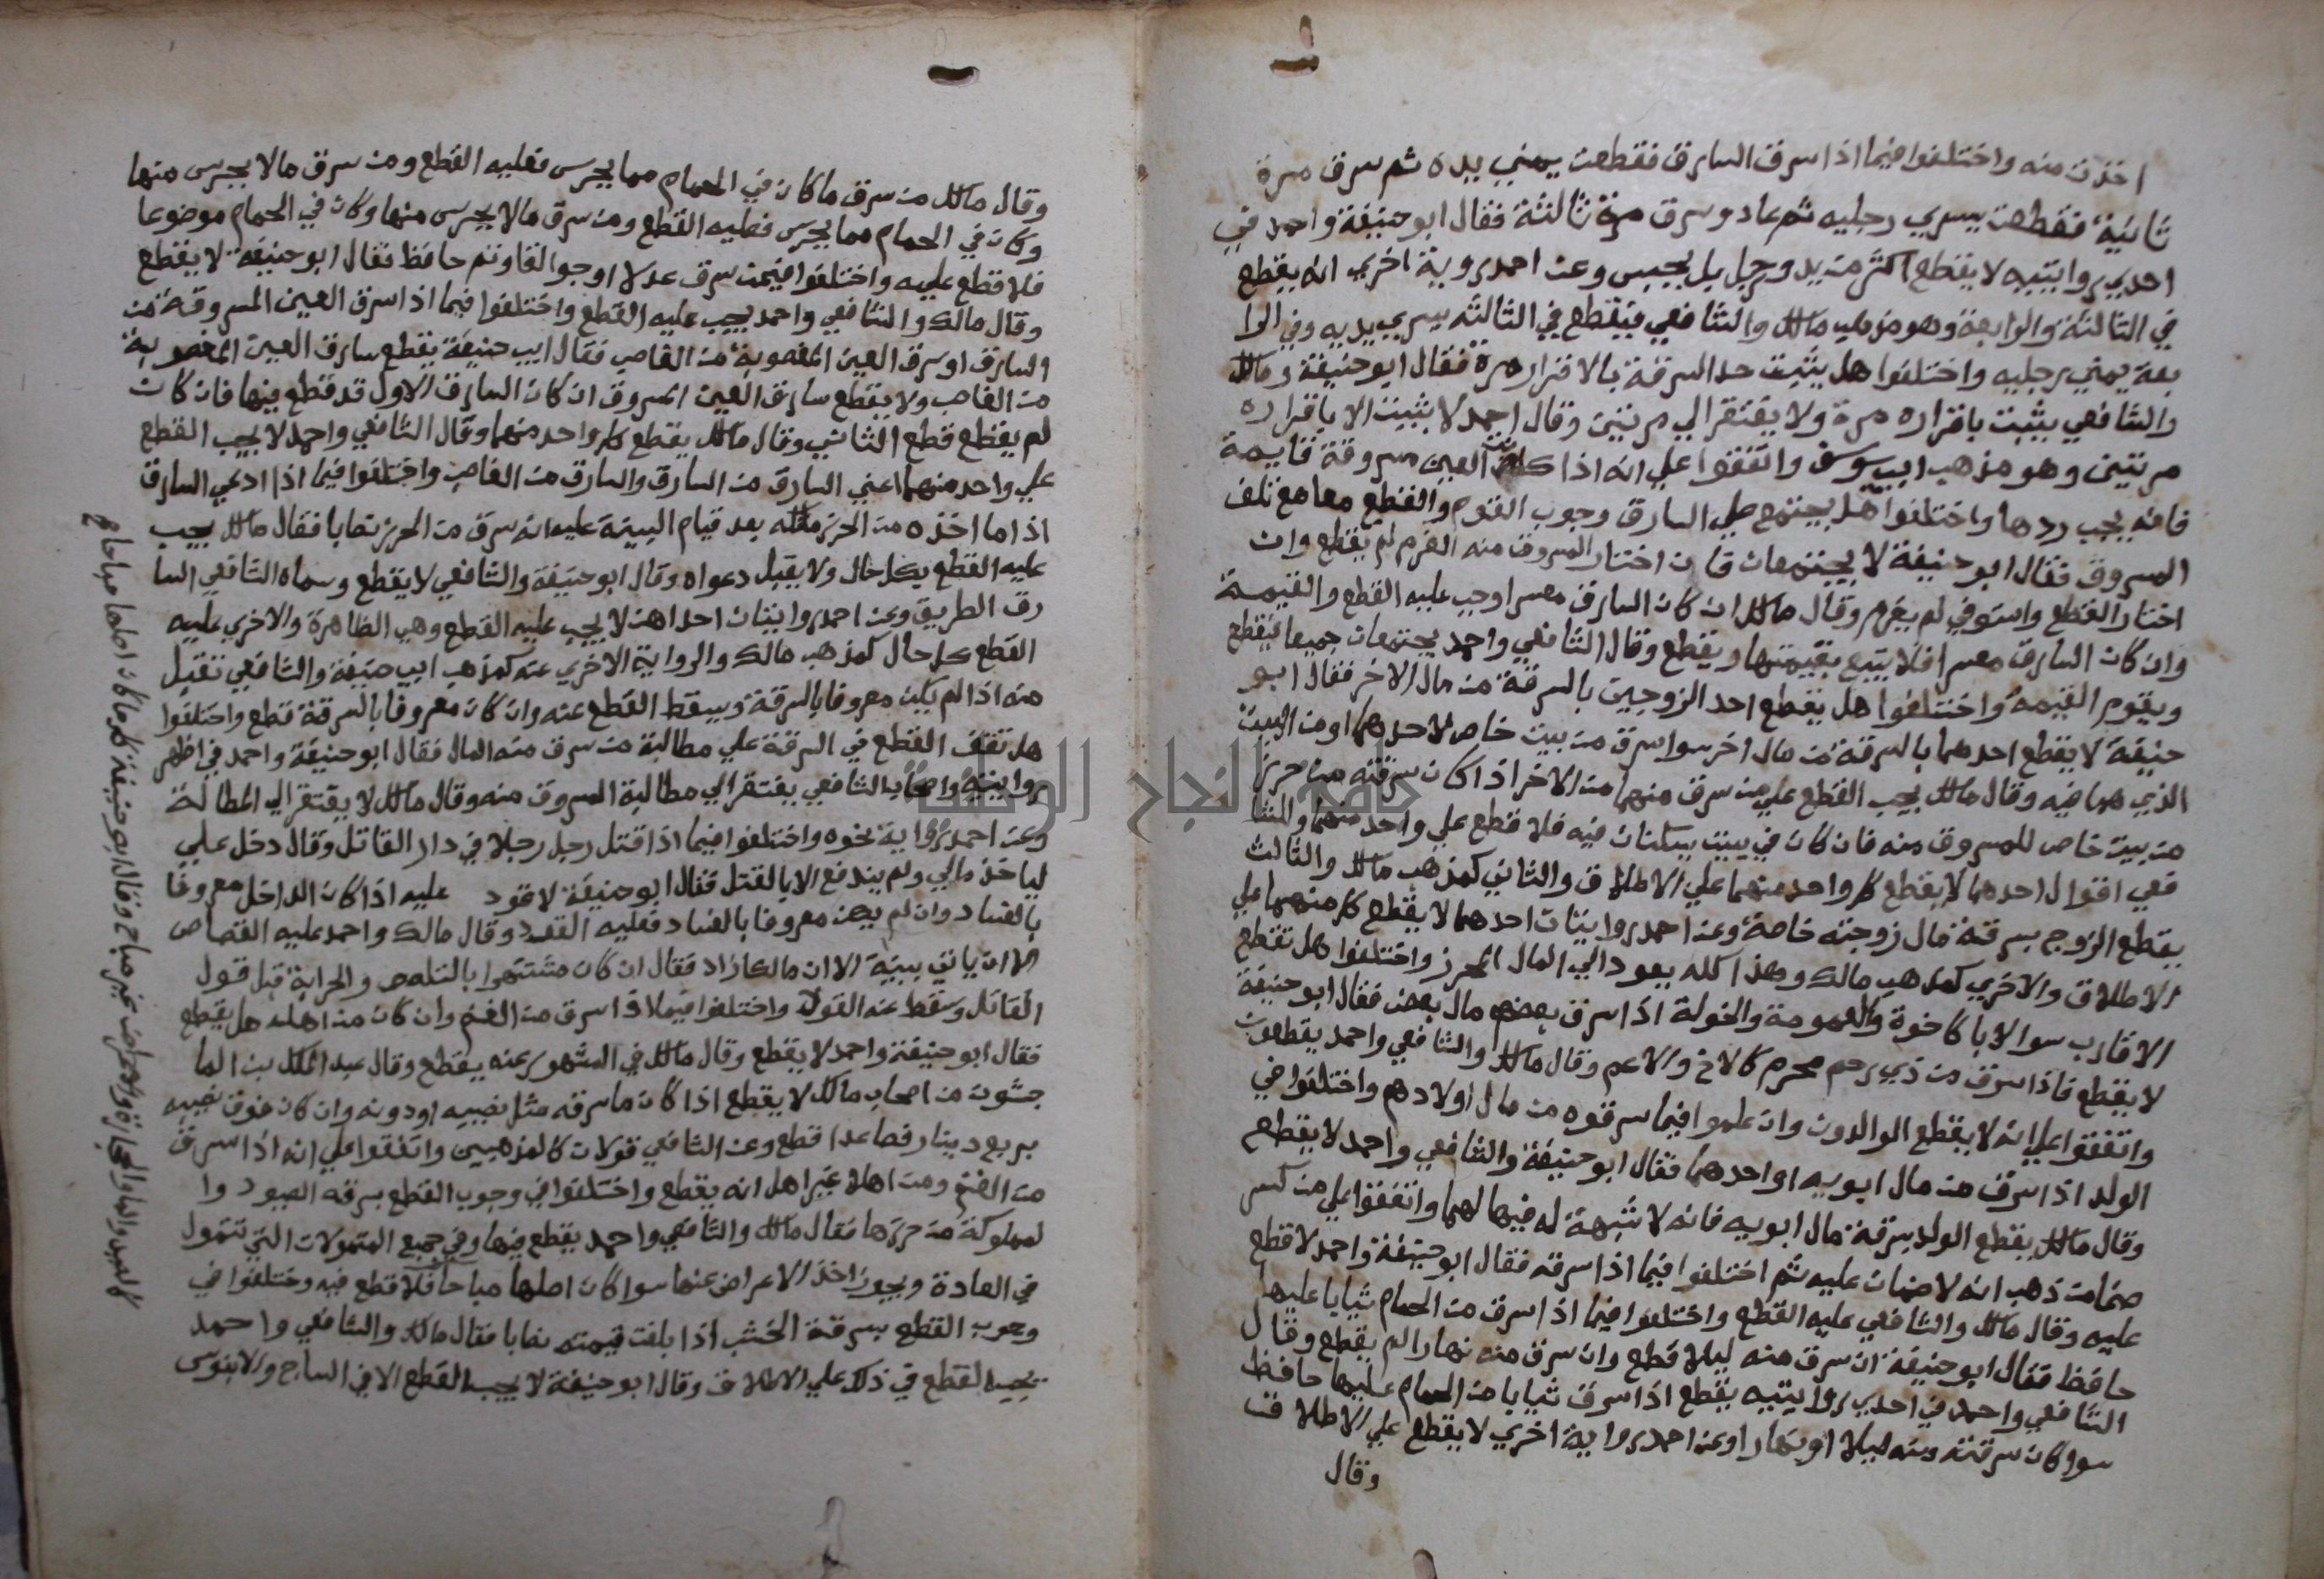 اخذت منه واختلفوا فيما اذا سرق السارق فقطعت يمني يده ثم سرق مرة
ثانية فقطعت يسري رجليه ثم عاد وسرق مرة ثالثة فقال ابو حنيفة واحمد في
احدي روايتيه لا يقطع اكثر من يد ورجل بل يحبس وعن احمد روية اخري انه يقطع
في الثالثة والرابعة وهو مذهب مالك والشافعي فيقطع في الثالثة يسري يديه وفي الرا
بعة يمني رجليه واختلفوا هل يثبت حد السرقة بالاقرار مرة فقال ابو حنيفة ومالك
والشافعي يثبت باقراره مرة ولا يفتقر الي مرتين وقال احمد لا يثبت الا باقراره
مرتين وهو مذهب ابي يوسف واتفقوا علي انه اذا كانت العين مسروقة قايمة
فانه يجب ردها واختلفوا هل يجتمع علي السارق وجوب الغرم والقطع معا مع تلف
المسروق فقال ابو حنيفة لا يجتمعان فان اختار المسروق منه الغرم لم يقطع وان
اختار القطع واستوفي لم يغرم وقال مالك ان كان السارق معسرا وجب عليه القطع والقيمة
وان كان السارق معسرا فلا يتبع بقيمتها ويقطع وقال الشافعي واحمد يجتمعان جميعا فيقطع
ويقوم القيمة واختلفوا هل يقطع احد الزوجين بالسرقة من مال الاخر فقال ابو
حنيفة لا يقطع احدهما بالسرقة من مال اخر سوا سرق من بيت خاص لاحدهما او من البيت
الذي هما فيه وقال مالك يجب القطع علي من سرق منهما من الاخر اذا كان سرقته من حرز
من بيت خاص للمسروق منه فان كان في بيت يسكنان فيه فلا قطع علي واحد منهما وللشا
فعي اقوال احدهما لا يقطع كل واحد منهما علي الاطلاق والثاني كمذهب مالك والثالث
يقطع الزوج بسرقة مال زوجته خاصة وعن احمد روايتان احدهما لا يقطع كل منهما علي
الاطلاق والاخري كمذهب مالك وهذا كله يعود الي المال المحرز واختلفوا هل تقطع
الاقارب سوا الابا كاخوة والعمومة والخولة اذا سرق بعضهم مال بعض فقال ابو حنيفة
لا يقطع فاذا سرق من ذي رحم محرم كالاخ والاعم وقال مالك والشافعي واحمد يقطعون
واتفقوا علي انه لا يقطع الوالدون وان علموا فيما سرقوه من مال اولادهم واختلفوا في
الولد اذا سرق من مال ابويه او احدهما فقال ابو حنيفة والشافعي واحمد لا يقطع
وقال مالك يقطع الولد بسرقة مال ابويه فانه لا شبهة له فيها لهما واتفقوا علي من كسر
صنما من ذهب انه لا ضمان عليه ثم اختلفوا فيما اذا سرقه فقال ابو حنيفة واحمد لا قطع
عليه وقال مالك والشافعي عليه القطع واختلفوا فيما اذا سرق من الحمام ثيابا عليها
حافظ فقال ابو حنيفة ان سرق منه ليلا قطع وان سرق منه نهارا لم يقطع وقال
الشافعي واحمد في احدي روايتيه يقطع اذا سرق ثيابا من الحمام عليها حافظ
سوا كان سرقته منه ليلا او نهارا وعن احمد رواية اخري لا يقطع علي الاطلاق
وقال
وقال مالك من سرق ما كان في الحمام مما يحرس فعليه القطع ومن سرق مالا يحرس منها
وكان في الحمام مما يحرس فعليه القطع ومن سرق مالا يحرس منها وكان في الحمام موضوعا
فلا قطع عليه واختلفوا فيمن سرق عدلا او جوالقا وثم حافظ فقال ابو حنيفة لا يقطع
وقال مالك والشافعي واحمد يجب عليه القطع واختلفوا فيما اذا سرق العين المسروقة من
السارق او سرق العين المغصوبة من الغاصب فقال ابي حنيفة يقطع سارق العين المغصوبة
من الغاصب ولا يقطع سارق العين المسروق ان كان السارق الاول قد قطع فيها فان كان
لم يقطع قطع الثاني وقال مالك يقطع كل واحد منهما وقال الشافعي واحمد لا يجب القطع
علي واحد منهما اعني السارق من السارق والسارق من الغاصب واختلفوا فيما اذا ادعي السارق
اذا ما اخذه من الحرز ملكه بعد قيام البينة عليه انه سرق من الحرز نصابا فقال مالك يجب
عليه القطع بكل حال ولا يقبل دعواه وقال ابو حنيفة والشافعي لا يقطع وسماه الشافعي السا
رق الظريف وعن احمد روايتان احداهن لا يجب عليه القطع وهي الظاهرة والاخري عليه
القطع بكل حال كمذهب مالك والرواية الاخري عنه كمذهب ابي حنيفة والشافعي تقبل
منه اذا لم يكن معروفا بالسرقة وسقط القطع عنه وان كان معروفا بالسرقة قطع واختلفوا
هل تقف القطع في السرقة علي مطالبة من سرق منه المال فقال ابو حنيفة واحمد في اظهر
روايتيه واصحاب الشافعي يفتقر الي مطالبة المسروق منه وقال مالك لا يفتقر الي المطالبة
وعن احمد رواية نحوه واختلفوا فيما اذا قتل رجل رجلا في دار القاتل وقال دخل علي
لياخذ مالي ولم يندفع الا بالقتل فقال ابو حنيفة لا قود عليه اذا كان الداخل معروفا
بالفساد وان لم يكن معروفا بالفساد فعليه القود وقال مالك واحمد عليه القصاص
الا ان ياتي ببينة الا ان مالكا زاد فقال ان كان مشتهرا بالتلصص والحرابة قبل قول
القاتل وسقط عنه القود واختلفوا فيما اذا سرق من الغنم وان كان من اهله هل يقطع
فقال ابو حنيفة واحمد لا يقطع وقال مالك في المشهور عنه يقطع وقال عبد الملك بن الما
جشون من اصحاب مالك لا يقطع اذا كان ما سرقه مثل نصيبه او دونه وان كان فوق نصيبه
بربع دينار فصاعدا قطع وعن الشافعي قولان كالمذهبين واتفقوا علي انه اذا سرق
من الغنم ومن اهلا غير اهل انه يقطع واختلفوا في وجوب القطع بسرقه الصيود وا
لمملوكة من حرزها فقال مالك والشافعي واحمد يقطع فيها وفي جميع المتمولات التي تتمول
في العادة ويجوز اخذ الاعراض عنها سوا كان اصلها مباحا فلا قطع فيه وختلفوا في
وجوب القطع بسرقة الخشب اذا بلغت قيمته نصابا فقال مالك والشافعي واحمد
يجب القطع في ذلك علي الاطلاق وقال ابو حنيفة لا يجب القطع الا في الساج والابنوس
كالصيد والماء والحجارة او كان اصلها غير مباح وقال ابو حنيفة كل ما كان اصلها مباحا ع
جامعة النجاح الوطنية